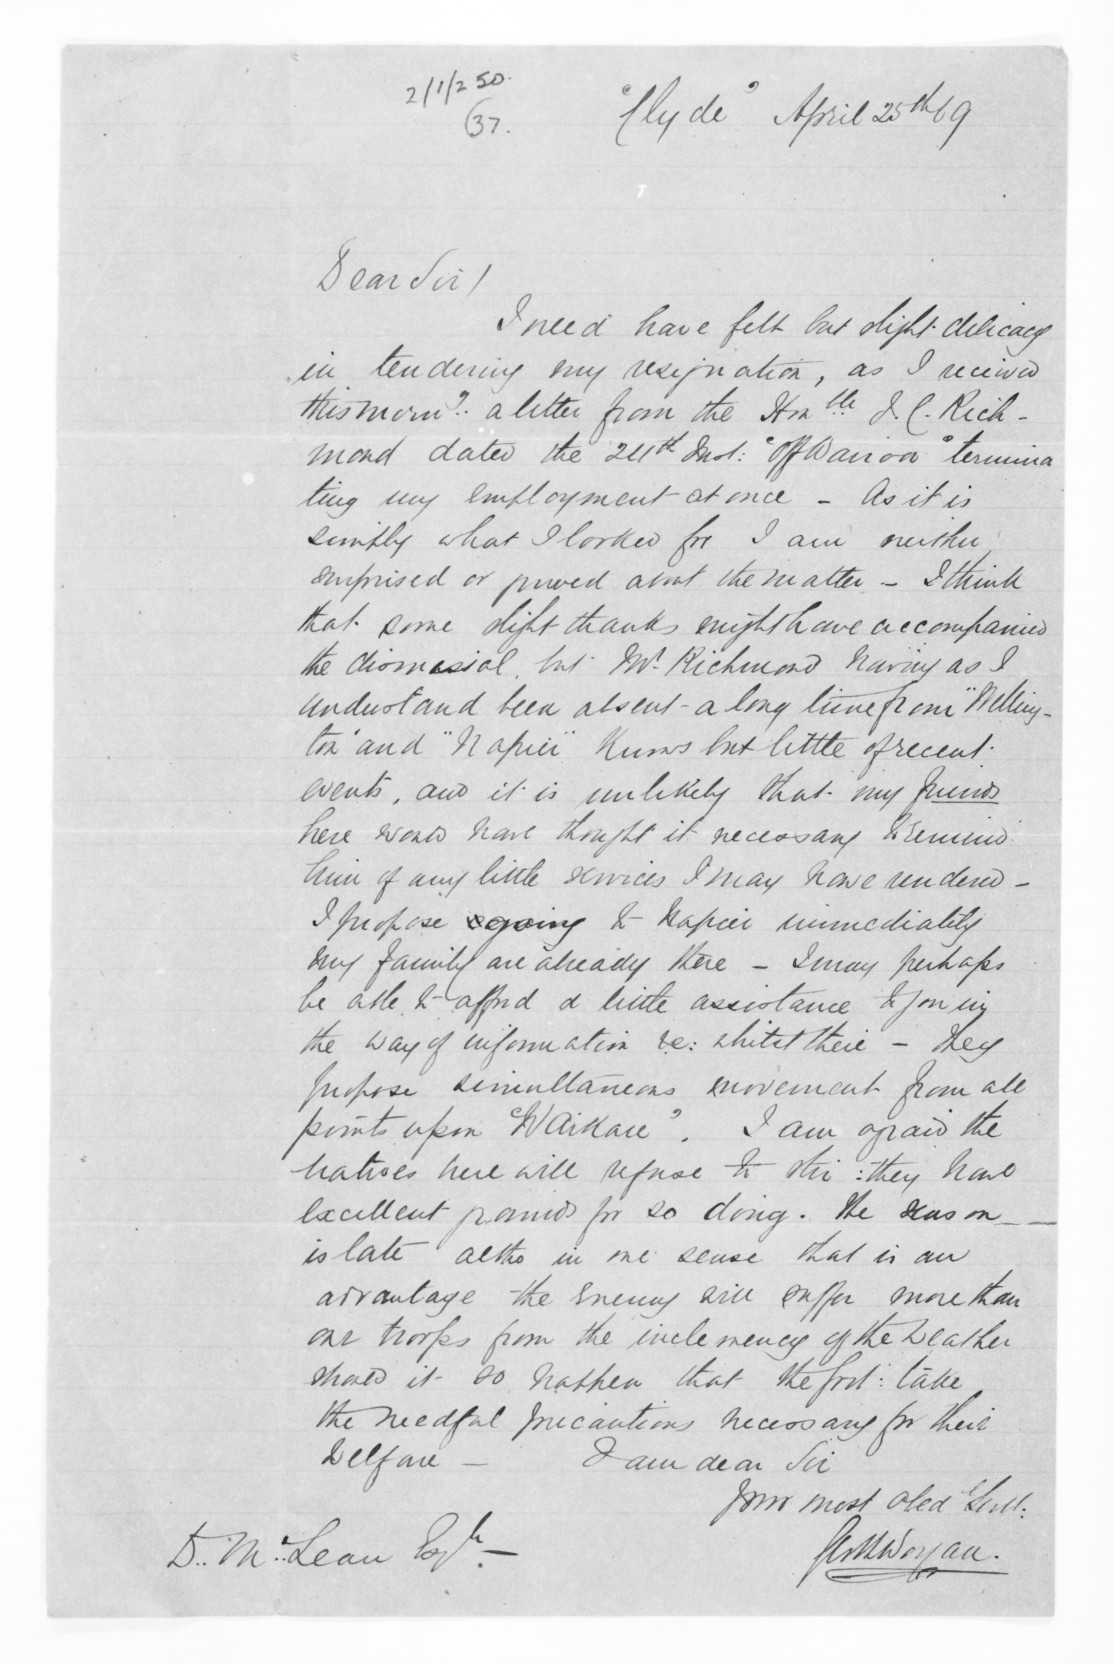 2/1/2 50.
37.
"Clyde" April 25th 69
Dear Sir /
I need have felt but slight delicacy
in tendering my resignation, as I received
this morng. a letter from the Honble J. C. Rich-
mond dated the 24th Inst: "Off Wairoa" termina
ting my employment at once - As it is
simply what I looked for I am neither
surprised or grieved about the matter - I think
that some slight thanks might have accompanied
the dismissial, but Mr Richmond having as I
understand been absent a long time from "Welling-
ton" and "Napier" knows but little of recent
events, and it is unlikely that my friends
here would have thought it necessary to remind
him of any little services I may have rendered -
I propose going to Napier immediately
my family are already there - I may perhaps
be able to afford a little assistance to you in
the way of information &c: whilst there - They
propose simultaneous movement from all
points upon "Waikare". I am afraid the
natives here will refuse to stir : they have
excellent grounds for so doing. The season
is late altho in one sense that is an
advantage the Enemy will suffer more than
our troops from the inclemency of the weather
should it so happen that the Govt: take
the needful precautions necessary for their
welfare - I am dear Sir
Your most obed Servt:
D. McLean Esqre. -
Worgan.